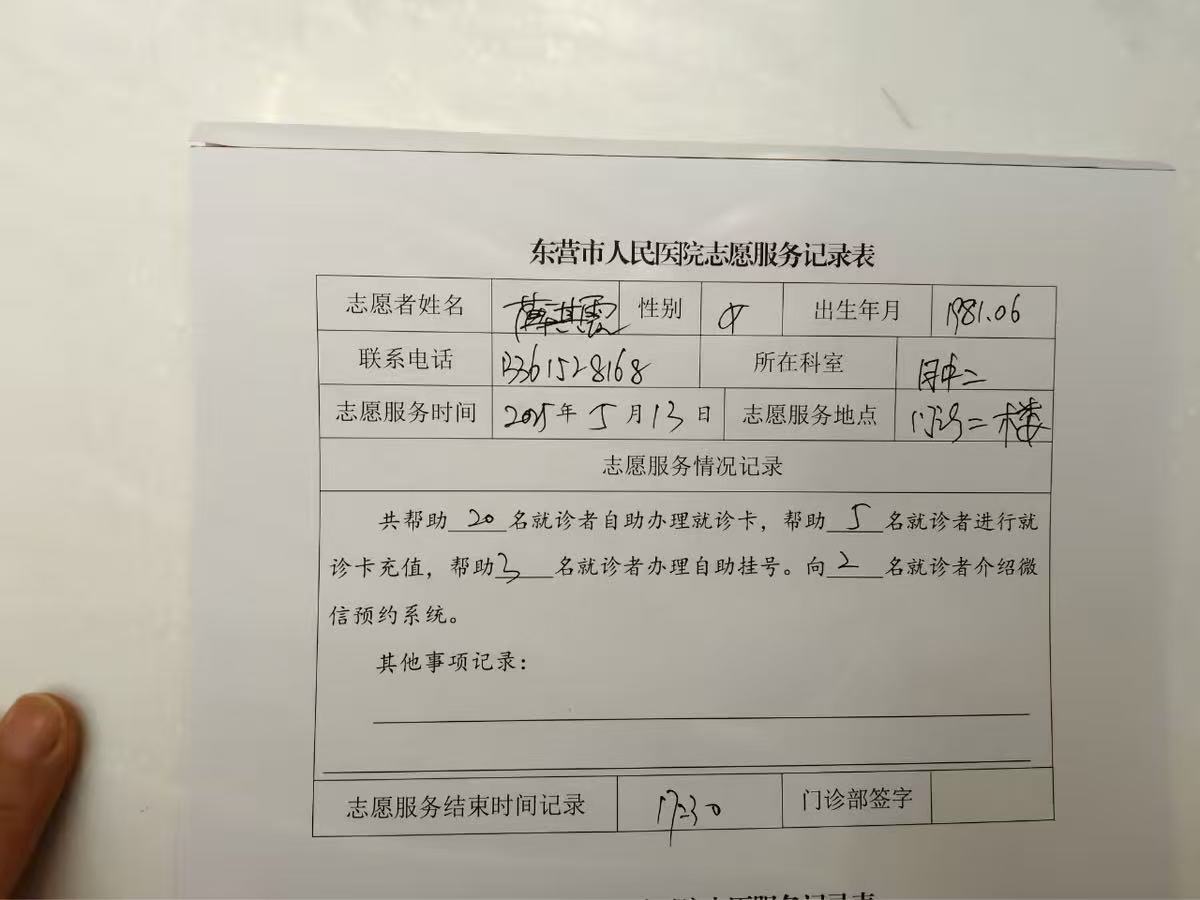 东营市人民医院志愿服务记录表
志愿者姓名 性别 女 出生年月 1981.06
联系电话 13361528168 所在科室
志愿服务时间 2025年5月13日 志愿服务地点 门诊二楼
志愿服务情况记录
共帮助20名就诊者自助办理就诊卡，帮助5名就诊者进行就
诊卡充值，帮助3名就诊者办理自助挂号。向2名就诊者介绍微
信预约系统。
其他事项记录：
志愿服务结束时间记录 17:30 门诊部签字